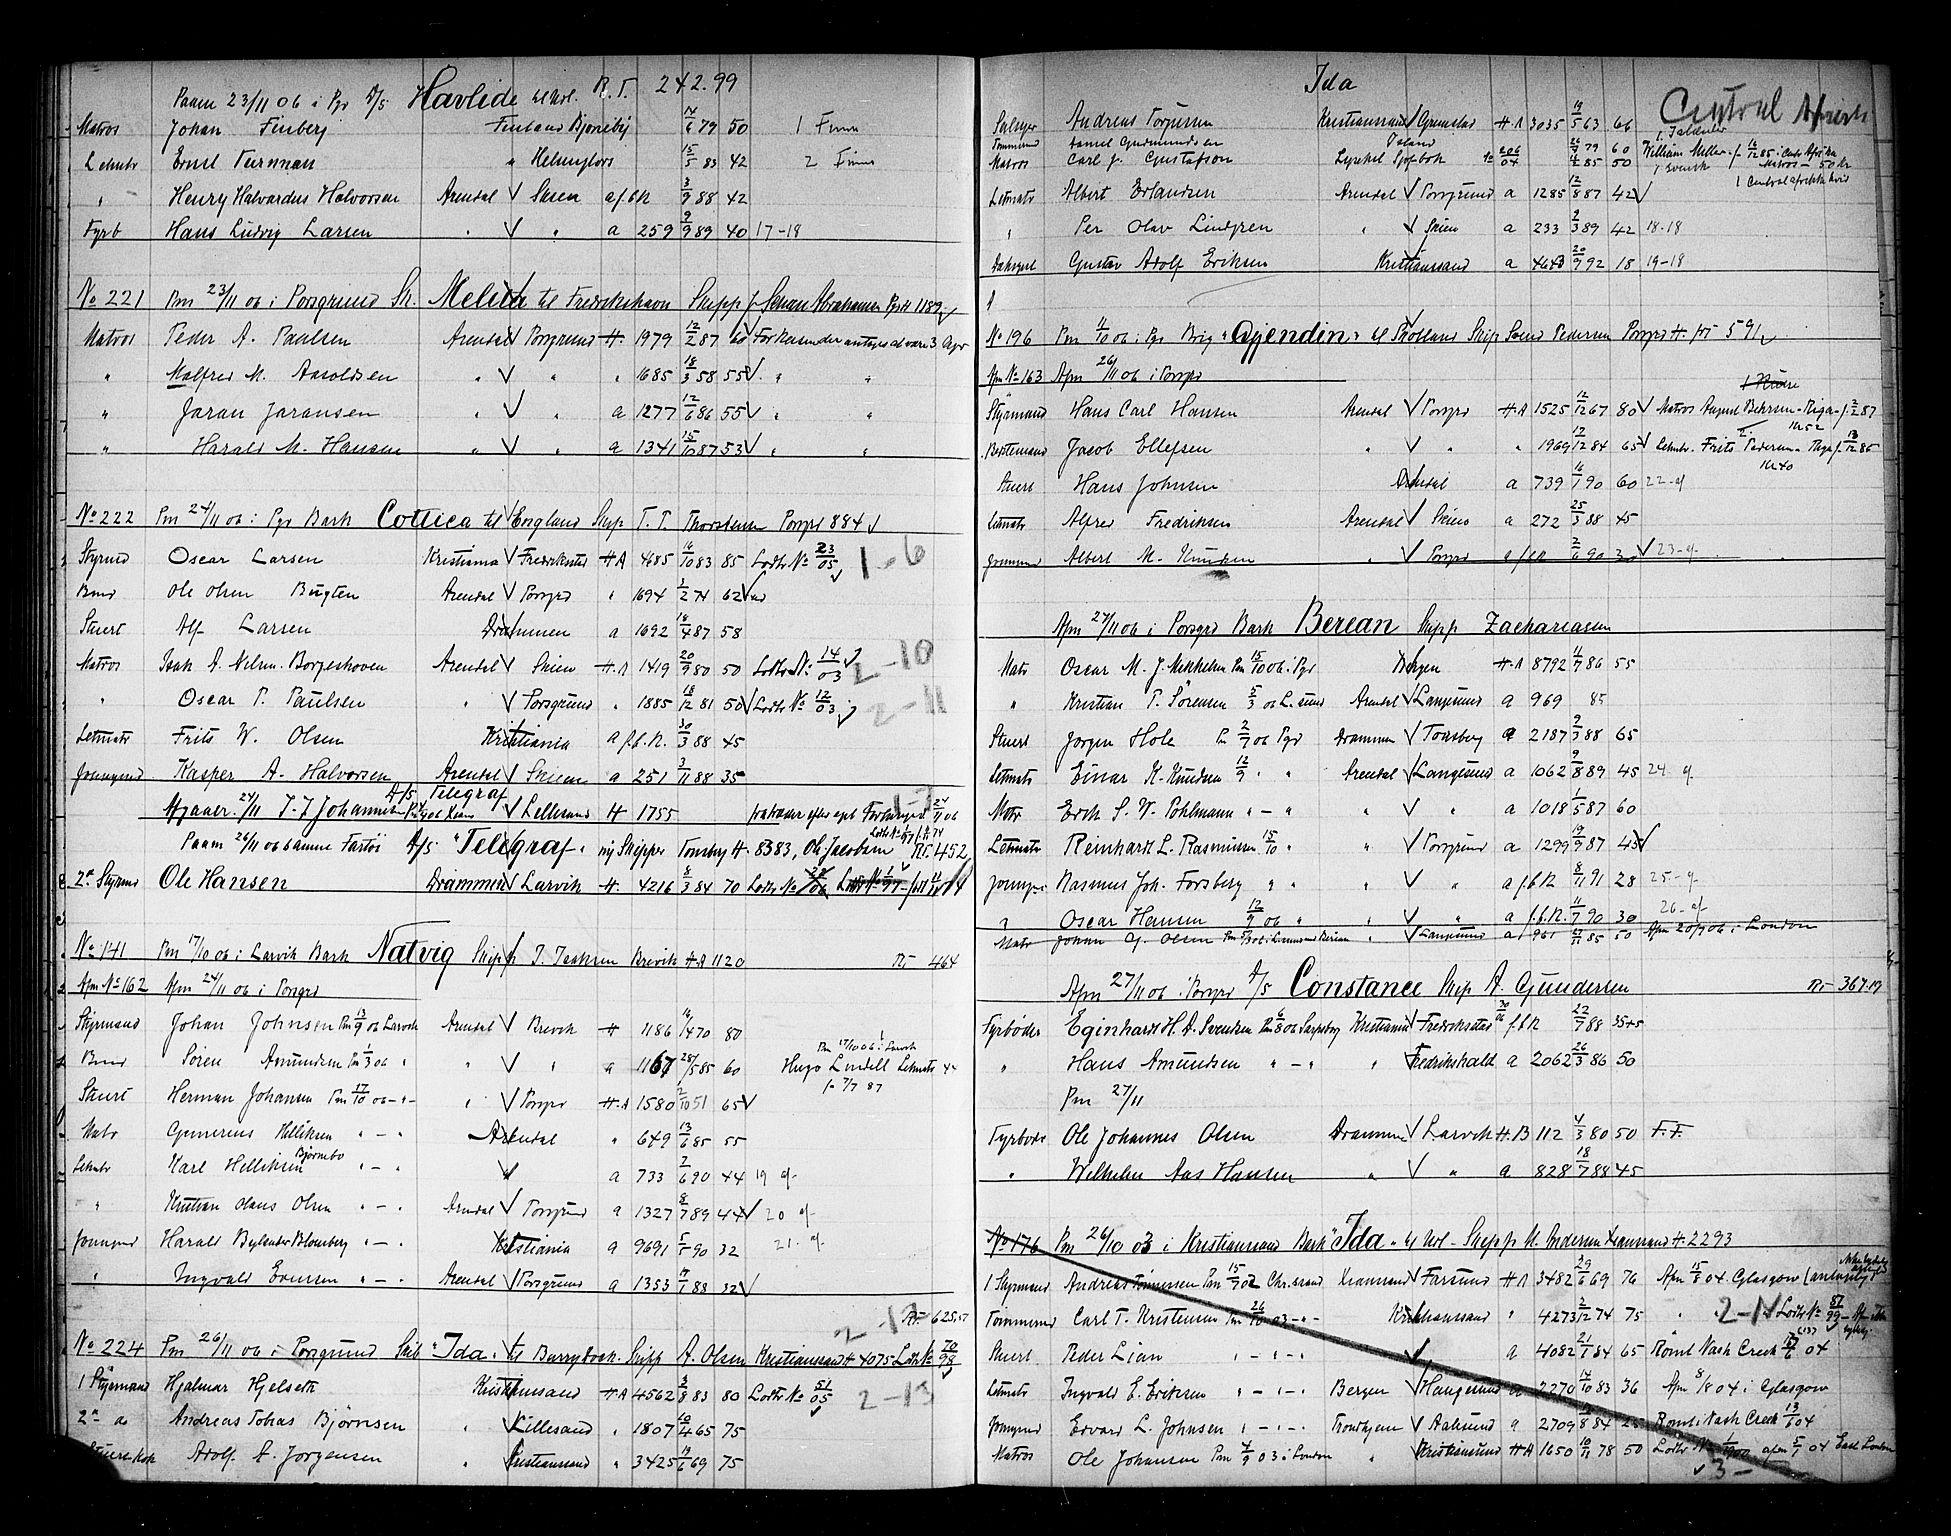 Paam 23/11 06 i Pgr D/S Havlide til Usl. R.T. 242.99
Matros Johan Finberg Finland Bjørneby 14/6 79 50 1 Finne
Letmatr Ernst Turnman " Helsingfors 15/5 83 42 2 Finner
" Henry Halvardus Halvorsen Arendal Skien a f.b.R 3/9 88 42
Fyrb Hans Ludvig Larsen " " a 259 9/9 89 40 17-18
No 221 Pm 23/11 06 i Porsgrund Sk. Melita til Fredrikshavn Skipp Johan Abrahamsen Pgr H 1189
Matros Peder A. Paulsen Arendal Porsgrund H. 1979 12/2 87 60
" Malfred M. Aaroldsen " " " 1685 18/3 58 55 " "
" Jaran Jaransen " " a 1277 12/6 86 55 " "
" Harald M. Hansen " " a 1341 15/10 87 53 " "
No 222 Pm 24/11 06 i Pgr Bark Cottica til England Skip T. T. Thorstensen Porsgr 884
Styrmd Oscar Larsen Kristiania Fredrikstad H A 4685 16/10 83 85 Lodtr No 23/05 1-6
Bmd Ole Olsen Bugten Arendal Porsgrd " 1694 3/2 74 62
Stuert Alf Larsen Drammen a 1692 18/4 87 58
Matros Isak A. Nilsen Borgeshoven Arendal Skien H.A 1419 20/9 80 50 Lodtr No 14/03 2-10
" Oscar P. Paulsen " Porsgrund " 1885 18/12 81 50 Lodtr No 12/03 2-11
Letmatr Frits W. Olsen Kristiania a f.b.R. 30/3 88 45
Jungmd Kasper A. Halvorsen Arendal Skien a 251 3/11 88 35
D/S Telegraf
Afgaaer 24/11 J. J. Johannesen Lillesand H 1755 fratræder efter eget Forlangende 24/11 06
Paam 26/11 06 samme Fartøi D/S "Telegraf" ny Skipper Tønsberg H. 8383, Ole Jacobsen RT 452
2den Styrmd Ole Hansen Drammen Larvik H. 4216 8/3 84 70 Lodtr No
No 141 Pm 17/10 06 i Larvik Bark Natvig Skipp J. Isaksen Brevik H A 1120 RT 464
Afm No 162 Afm 24/11 06 i Porsgrd
Styrmand Johan Johnsen Pm 13/9 06 Larvik Arendal Brevik H 1186 14/4 70 80
Bmd Søren Amundsen Pm 1/3 06 " " " a 1167 28/5 85 60 Pm 17/10 06 i Larvik
Hugo Lindell Letmatr 44
f. 7/7 87
Stuert Herman Johansen Pm 17/10 06 -"- " Porsgr H.A 1580 2/10 51 65
Matr Gunerius Helliksen " - " Arendal " 649 13/6 85 55
Letmtr Karl Helliksen Bjørnebo " - " a 733 2/6 90 44 19 g.
" Kristian Olaus Olsen " - " Arendal Porsgrund a 1327 8/7 89 44 20 g
Jungmd Harald Bylander Blomberg " - " Kristiania a 9691 5/5 90 32 21. g.
" Ingvald Evensen " - " Arendal Porsgrund a 1353 17/7 88 32
2-12 RT 625,57
No 224 Pm 26/11 06 i Porsgrund Skib "Ida" til Barrydock. Skipp A. Olsen Kristianssand H 4075 Lodtr No 70/98
1 Styrmand Hjalmar Hjelseth Kristianssand H A 4562 3/8 83 80 Lodtr No 51/05 2-13
2den a Andreas Tobias Bjørnsen " Lillesand " 1807 10/4 65 75
Stuert Kok Adolf A. Jørgensen " Kristianssand " 3425 13/6 69 75
Ida
Central Africa
Seilmager Andreas Torjussen Kristianssand Grimstad H A 3035 19/5 63 66
Tømmermd Daniel Gudmundsen Island 26/9 79 60 1 Islænder
Matros Carl J. Gustafson Lysekil Sjøfbok No 206/04 4/4 85 50 William Miller f. 16/12 85 i Centr Afrika
Matros - 50 Kr
1 Svensk
1 Centralafrikk hvid
Letmatr Albert Erlandsen Arendal Porsgrund a 1285 12/8 87 42
" Per Olav Lindgren " Skien a 233 2/3 89 42 18-18
Dæksgut Gustav Adolf Eriksen Kristianssand a 4643 20/9 92 18 19-18
No 196 Pm 11/10 06 i Pgr Brig "Gjendin" til Skotland Skip Svend Pedersen Porsgrd H. 591
Afm No 163 Afm 26/11 06 i Porsgrd
Styrmand Hans Carl Hansen Arendal Porsgrd H.A 1525 12/12 67 80 Matros August Behrsen - Riga - f. 2/2 87
Kr 52
Bestemand Jacob Ellefsen " " " 1969 17/12 84 65 Letmtr. Frits Pedersen - Riga f. 13/12 85
Kr 40
Stuert Hans Johnsen Arendal a 739 16/1 90 60 22-g
Letmatr Alfred Fredriksen Arendal Skien a 272 25/3 88 45
Jungmd Albert M. Knudsen " Porsgrd a f.b.R 2/6 90 30 23-g.
Afm 27/11 06 i Porsgrd Bark Berean Skipp Zachariasen
Matr Oscar M. J. Mikkelsen Pm 15/10 06 i Pgr Bergen H.A 8792 11/7 86 55
" Kristian P. Sørensen 5/3 06 L.sund Arendal Langesund a 969 85
Stuert Jørgen Hole Pm 2/7 06 Pgr Drammen Tønsberg a 2187 9/3 88 65
Letmatr Einar K. Knudsen 12/9 " " Arendal Langesund a 1062 9/8 89 45 24. g.
Matr Erik S. W. Pohlmann " - " " " a 1018 1/5 87 60
Letmatr Reinhardt L. Rasmussen 15/10 " " Porsgrund a 1299 19/9 87 45
Jungm Rasmus Joh. Forsberg " " " " a f.b.R 8/11 91 28 25.-g.
" Oscar Hansen 12/9 06 " " " a f.b.R. 11/7 90 30 26-g
Matr Johan G. Olsen " Langesund a 961 27/11 85 50 Afm 20/9 06 i London
Afm 27/11 06 i Porsgrd D/S Constance Skip A. Gundersen RT 367.19
Fyrbøder Eginhardt H. A. Svendsen Pm 6/8 06 Sarpsborg Kristiania Fredrikstad 30/06 f.b.R 22/7 88 35+5
" Hans Amundsen " - " " Fredrikshald a 2062 26/3 86 50
Pm 27/11
Fyrbøde Ole Johannes Olsen Drammen Larvik H.B 112 4/3 80 50 F.F.
" Wilhelm Aas Hansen " " a 828 18/7 88 45
No 176 Pm 26/10 03 i Kristianssand Bark "Ida" til Usl - Skipp M. Andersen Xianssand H. 2293
1 Styrmand Andreas Tønnessen Pm 15/9 02 Chr.sand Xianssand Farsund H A 3482 29/6 69 76 Afm 15/8 04. Glasgow
Tømmermd Carl T. Kristensen Pm 26/10 03 -"- Kristianssand " 4273 2/12 74 75 " 2-11 Lodtr No 87/99
Stuert Peder Lian " - " - a 4082 21/1 84 65 Rømt Nash Creek 17/6 04
Letmatr Ingvald E. Eriksen " - " - Bergen Haugesund a 2270 14/10 83 36 Afm 8/8 04 i Glasgow
Jungmd Edvard L. Johnsen " - " - Trondhjem Aalesund a 2709 12/8 84 25 Rømt i Nash Creek 13/6 04
Matros Ole Johansen Pm 4/9 03 i London " Kristianssund H A 1650 10/11 78 50 Lodtr No 1/1900 afm 5/7 04 East London
3-